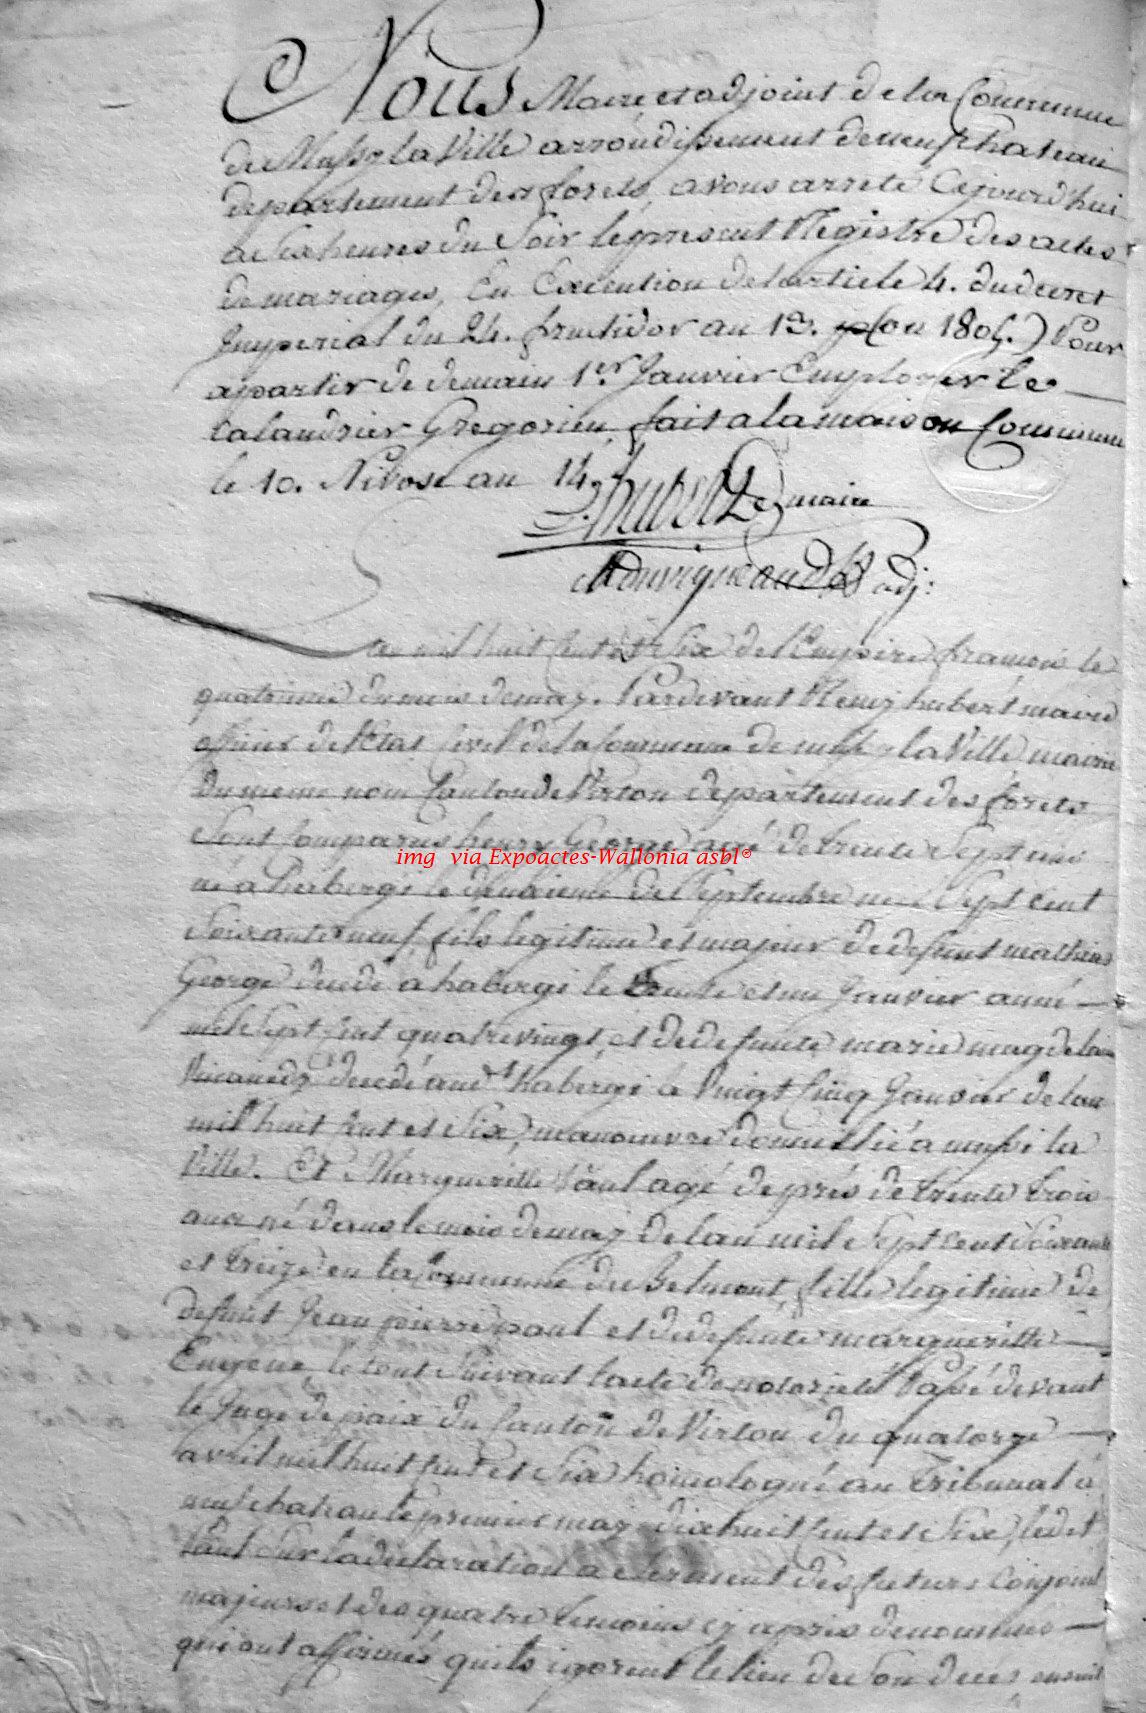 Nous Maire et adjoint de la Commune
de Mussy la Ville arrondissement de neufchateau
departement des forets, avons arreté Cejourd'hui
a Six heures du Soir le present Registre des actes
de mariages, En Execution de l'article 4. du decret
Imperial du 24. fructidor an 13. (ou 1805.) Pour
apartir de demain 1er Janvier Employer le
Calandrier Gregorien, fait a la maison Commune
le 10. Nivose an 14.
hubert maire
adj:
L'an mil huit cent et Six de l'Empire francois le
quatrieme du mois de may. Pardevant Remy hubert maire
officier de l'Etat Civil de la Commune de mussy la Ville mairie
du meme nom Canton de Virton departement des forets
Sont Comparus henry George agé de trente Sept ans
né a herbergi le deuxieme de Septembre mil Sept Cent
Soixante neuf, fils legitime et majeur de defunt mathias
George decedé a habergi le trente et un Janvier année
mil Sept Cent quatre vingt, et de defunte marie magdelaine
decedé audt habergi le Vingt Cinq Janvier de l'an
mil huit Cent et Six, manoeuvre domicilié a mussi la
Ville. Et Margueritte Paul agé de près de trente trois
ans né dans le mois de may de l'an mil Sept Cent Soixante
et treize en la Commune du Belmont, fille legitime de
defunt Jean pierre paul et de defunte margueritte
Eugene, le tout Suivant l'acte de notorieté Passé devant
le Juge de paix du Canton de Virton du quatorze
avril mil huit Cent et Six homologué au Tribunal à
neufchateau le premier may dix huit Cent et Six, ledit
Paul Sur la declaration a Serment des futurs Conjoint
majeurs et des quatre temoins cy après denommés
qui ont affirmés quils ignorent le lieu de Son deces